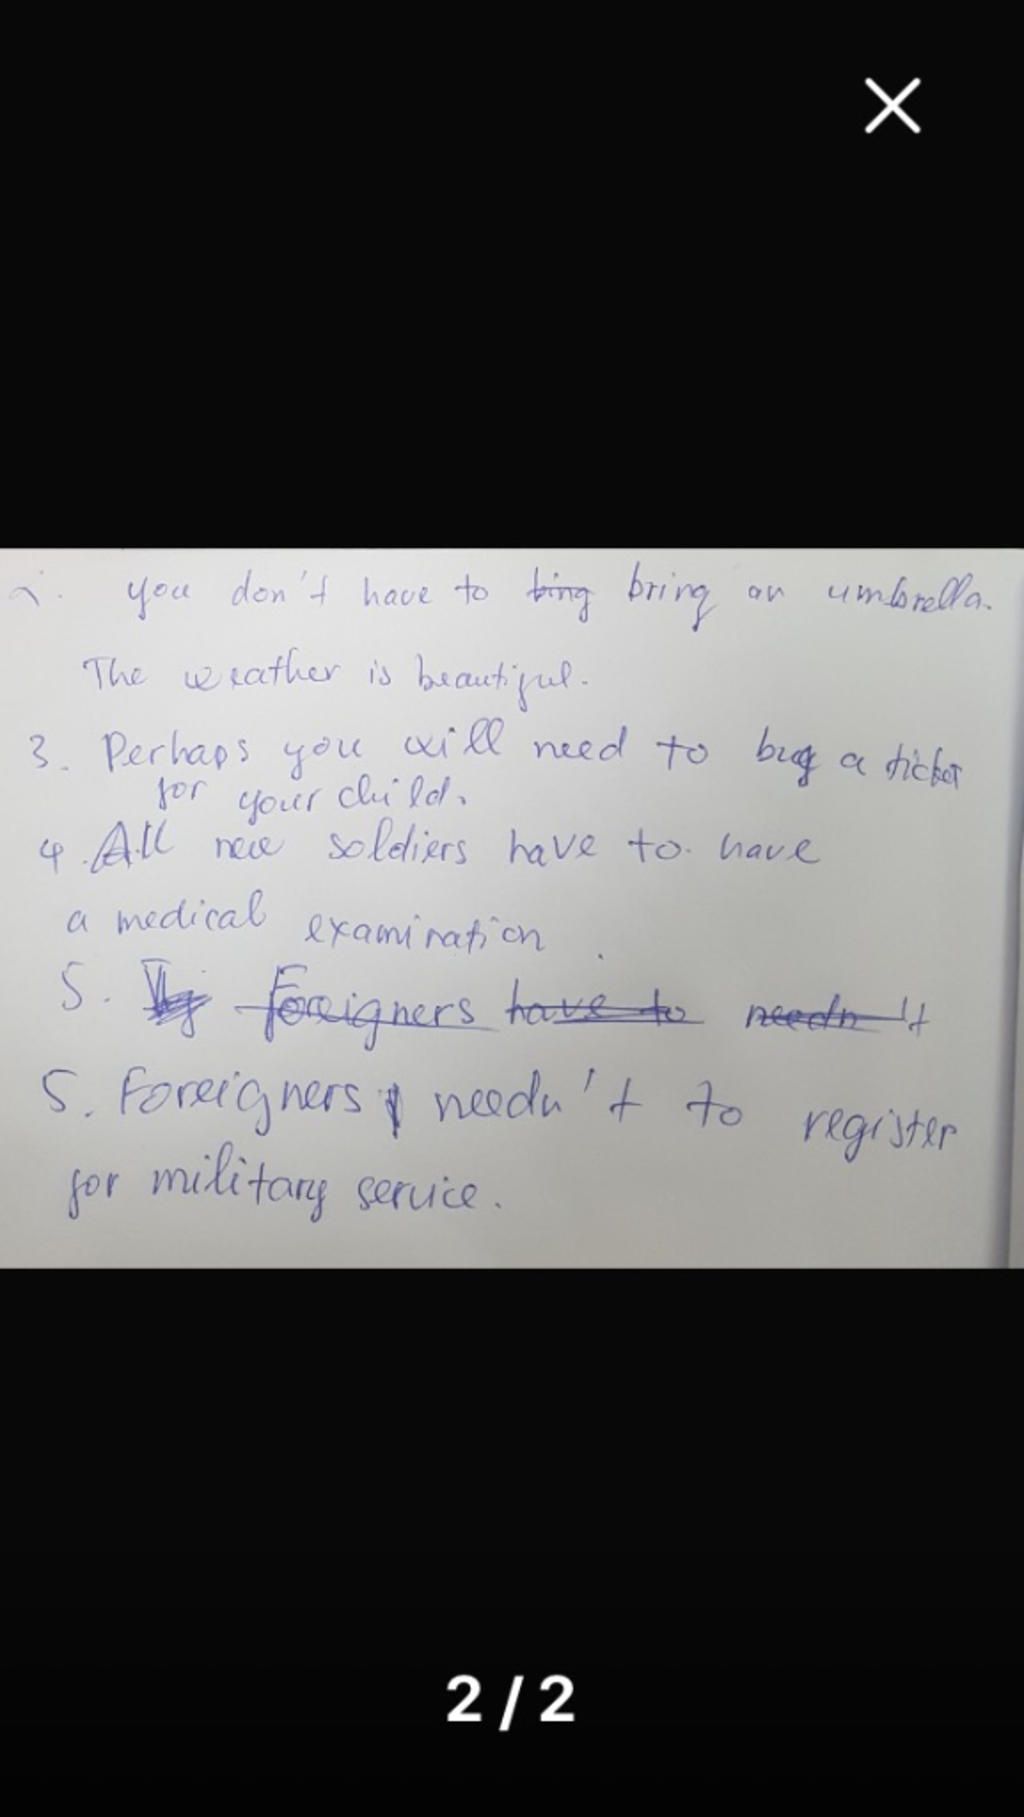 2. you don't have to bring bring an umbrella.
The weather is beautiful.
3. Perhaps you will need to buy a ticket
for your child.
4. All new soldiers have to have
a medical examination.
5. Foreigners have to needn't
5. Foreigners needn't to register
for military service.
2/2